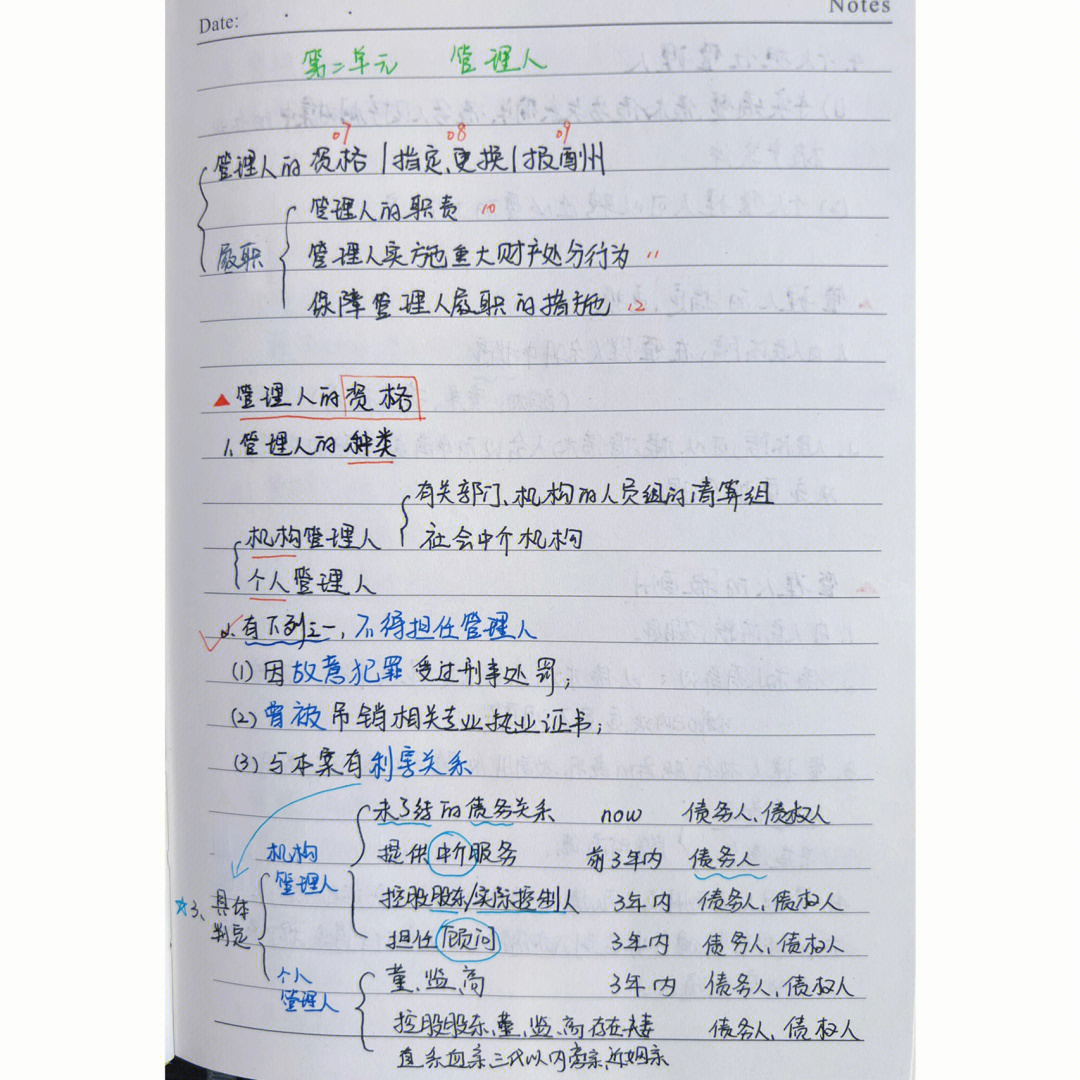 Notes
Date:
第二单元 管理人
07 08 09
管理人的资格|指定、更换|报酬
履职
管理人的职责 10
管理人实施重大财产处分行为 11
保障管理人履职的措施 12
▲管理人的资格
1、管理人的种类
机构管理人
有关部门、机构的人员组的清算组
社会中介机构
个人管理人
2、有下列之一，不得担任管理人
(1) 因故意犯罪受过刑事处罚；
(2) 曾被吊销相关专业执业证书；
(3) 与本案有利害关系
☆3、具体判定
机构管理人
未了结的债务关系 now 债务人、债权人
提供中介服务 前3年内 债务人
控股股东/实际控制人 3年内 债务人、债权人
担任顾问 3年内 债务人、债权人
个人管理人
董、监、高 3年内 债务人、债权人
控股股东、董、监、高存在夫妻 债务人、债权人
直系血亲、三代以内旁亲、近姻亲